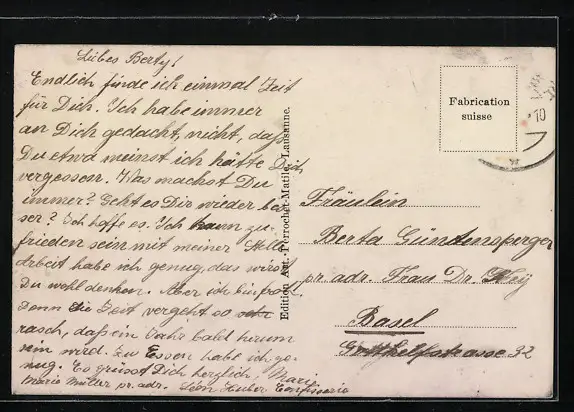 Liebes Berty!
Endlich finde ich einmal Zeit
für Dich. Ich habe immer
an Dich gedacht, nicht, daß
Du etwa meinst ich hätte Dich
vergessen. Was machst Du
immer? Geht es Dir wieder bes
ser? Ich hoffe es. Ich kann zu-
frieden sein mit meiner Stelle
Arbeit habe ich genug, das wirst
Du wohl denken. Aber ich bin froh,
denn die Zeit vergeht so
rasch, daß ein Jahr bald herum
sein wird. Zu Essen habe ich ge-
nug. Es grüsst Dich herzlich, Marie
Marie Müller pr. adr. Huber Confiserie
Edition Art. Perrochet-Matile, Lausanne.
Fabrication
suisse
10
Fräulein
Berta Güntensperger
pr. adr. Frau Dr.
Basel
Gotthelfstrasse 32